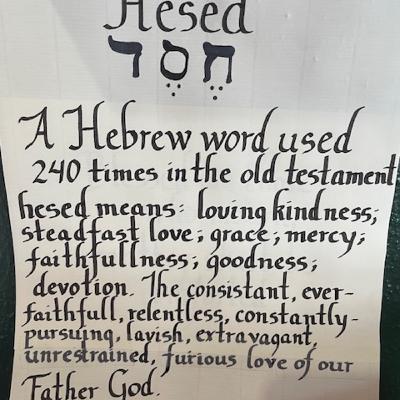 Hesed
חֶסֶד
A Hebrew word used
240 times in the old testament
hesed means: loving kindness;
steadfast love; grace; mercy;
faithfullness; goodness;
devotion. The consistant, ever-
faithfull, relentless, constantly-
pursuing, lavish, extravagant,
unrestrained, furious love of our
Father God.